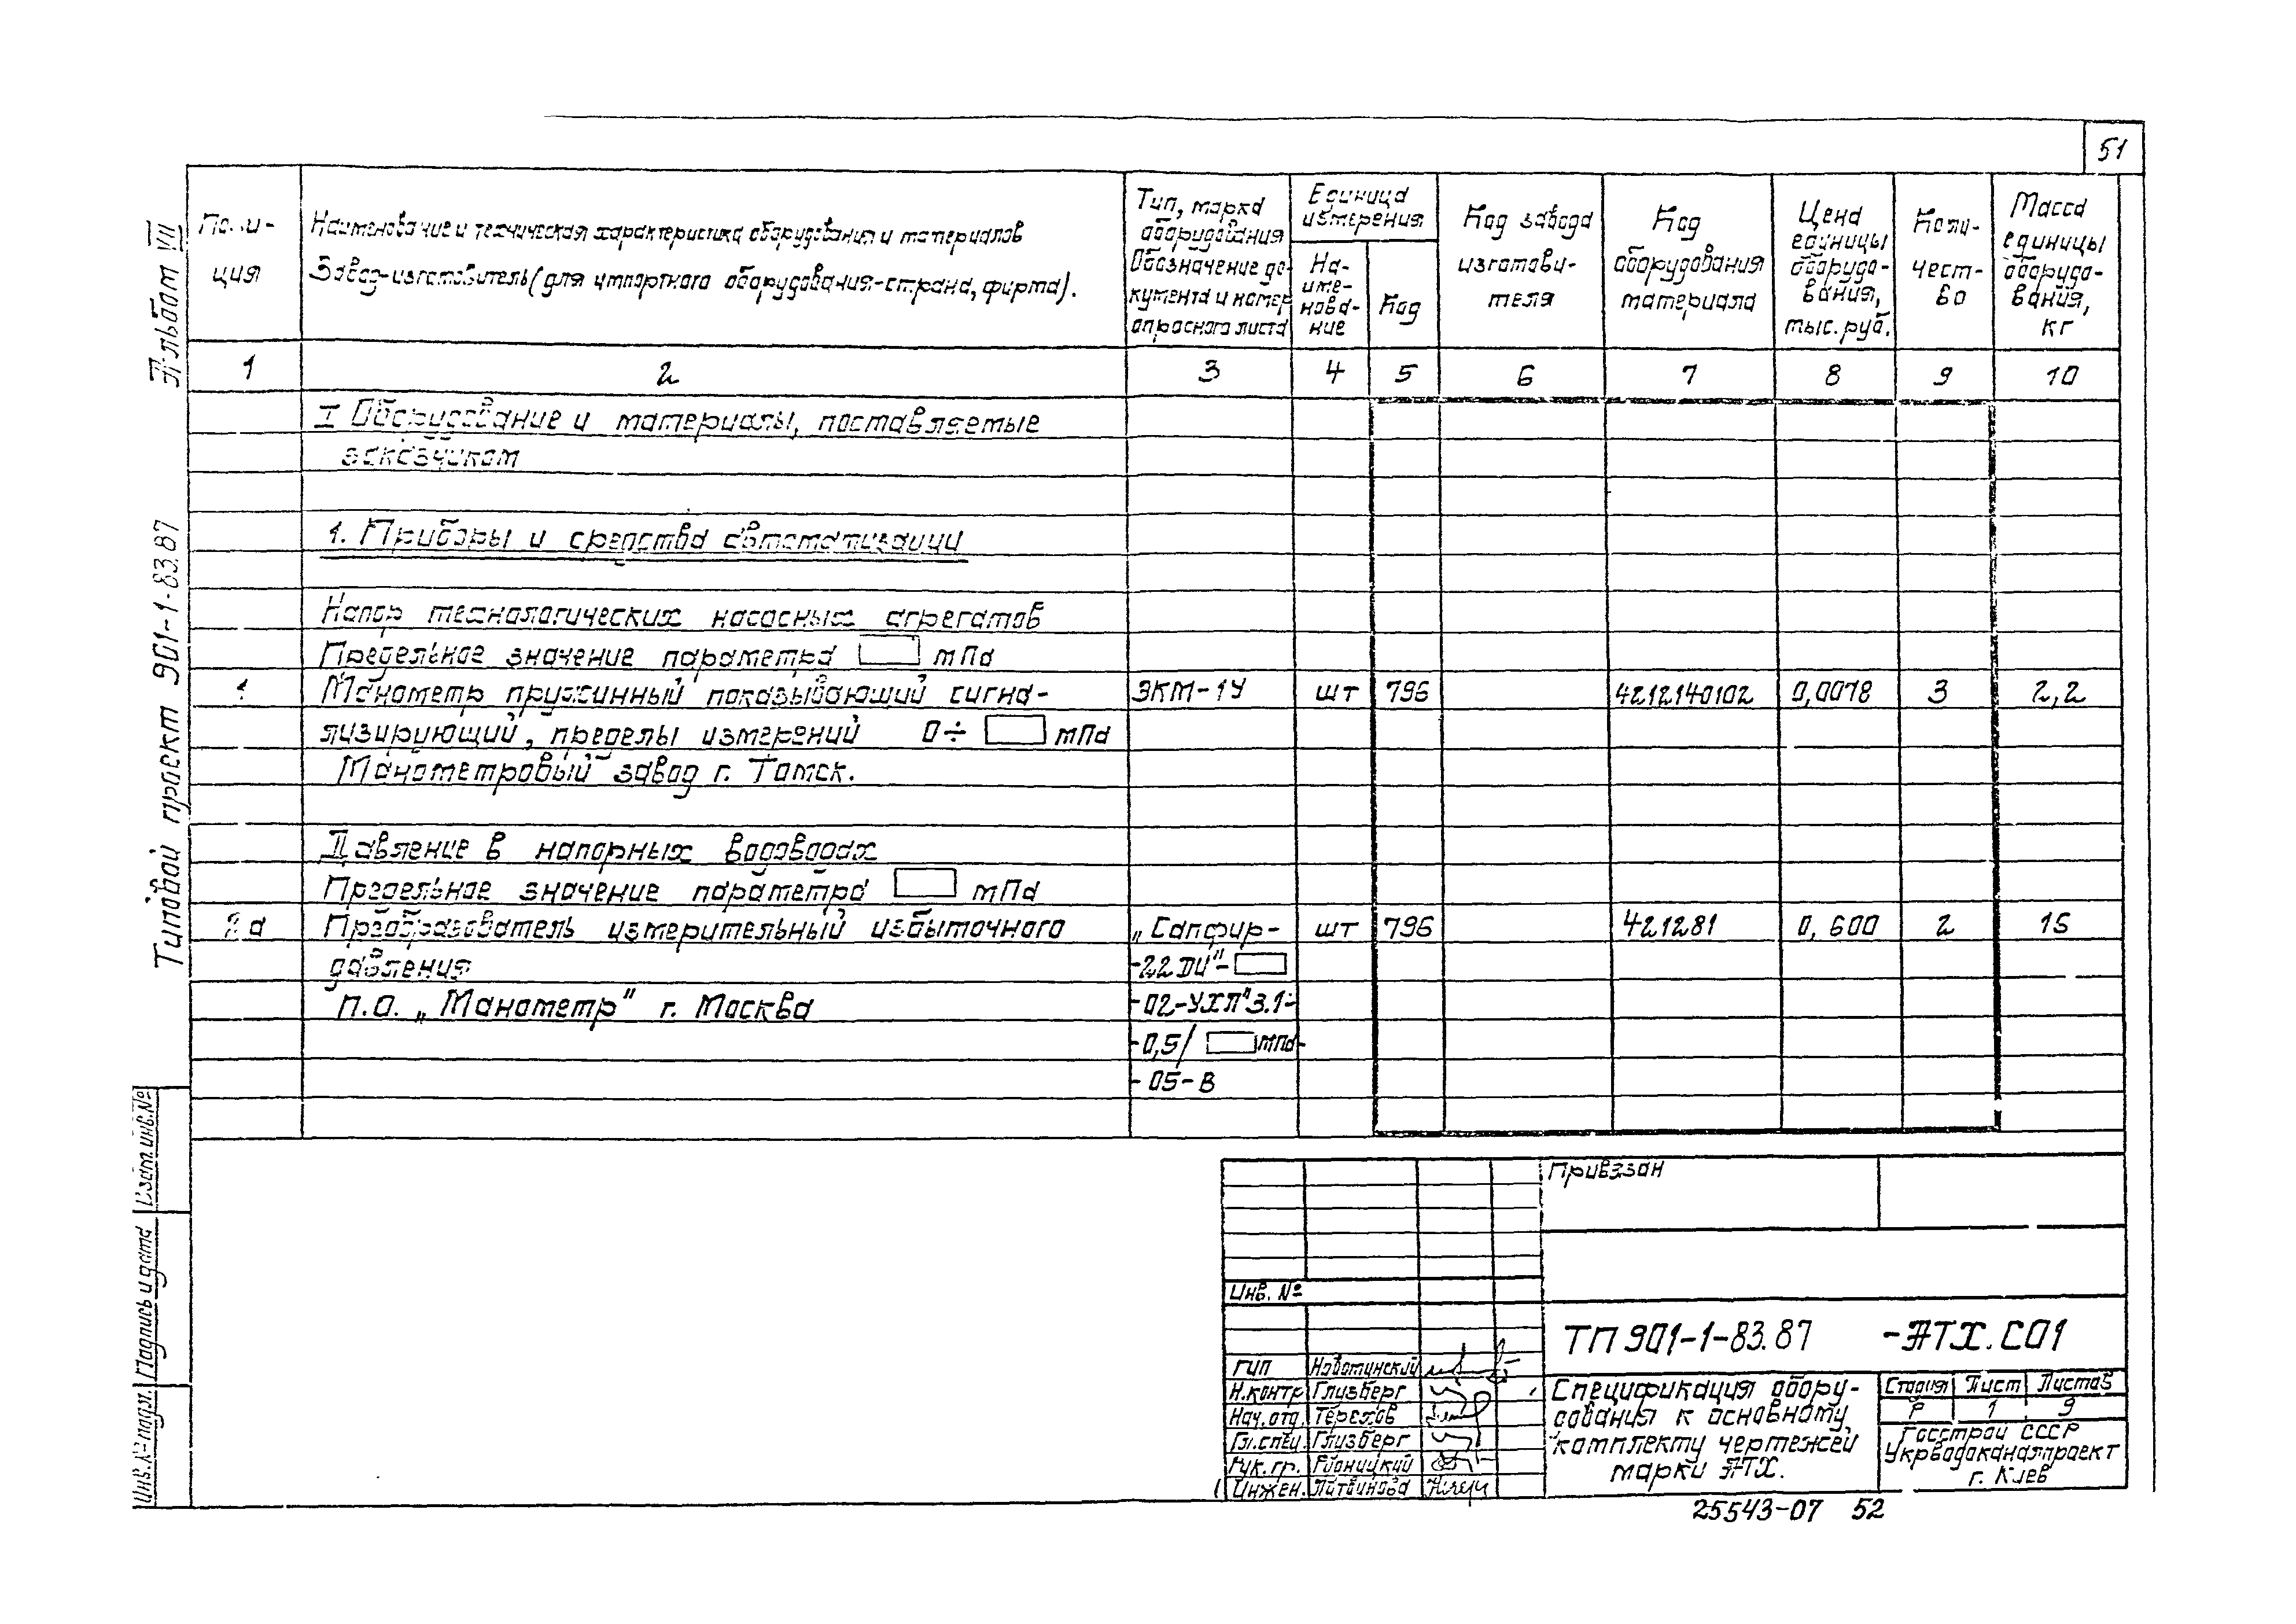 51
Альбом VII
Типовой проект 901-1-83.87
Пози-
ция
Наименование и техническая характеристика оборудования и материалов
Завод-изготовитель (для импортного оборудования-страна, фирма).
Тип, марка
оборудования
Обозначение до-
кумента и номер
опросного листа
Единица
измерения
На-
име-
нова-
ние
Код
Код завода
изготови-
теля
Код
оборудования
материала
Цена
единицы
оборудо-
вания,
тыс. руб.
Коли-
чест-
во
Масса
единицы
оборудо-
вания,
кг
1 2 3 4 5 6 7 8 9 10
I Оборудование и материалы, поставляемые
заказчиком
1. Приборы и средства автоматизации
Напор технологических насосных агрегатов
Предельное значение параметра мПа
1 Манометр пружинный показывающий сигна- ЭКМ-1У шт 796 4212140102 0,0078 3 2,2
лизирующий, пределы измерений 0÷ мПа
Манометровый завод г. Томск.
Давление в напорных водоводах
Предельное значение параметра мПа
2а Преобразователь измерительный избыточного „Сапфир- шт 796 421281 0,600 2 15
давления -22ДИ"-
п.о. „Манометр" г. Москва -02-УХЛ"3.1-
-0,5/ мПа-
-05-В
Взам. инв. №
Подпись и дата
Инв. № подл.
Привязан
Инв. №
ТП 901-1-83.87 -АТХ.СО1
ГИП Новотинский
Н.контр Глизберг
Нач.отд. Терехов
Гл.спец. Глизберг
Рук. гр.
Инжен. Литвинова
Спецификация обору-
дования к основному
комплекту чертежей
марки АТХ.
Стадия Лист Листов
Р 1 9
Госстрой СССР
Укрводоканалпроект
г. Киев
25543-07 52